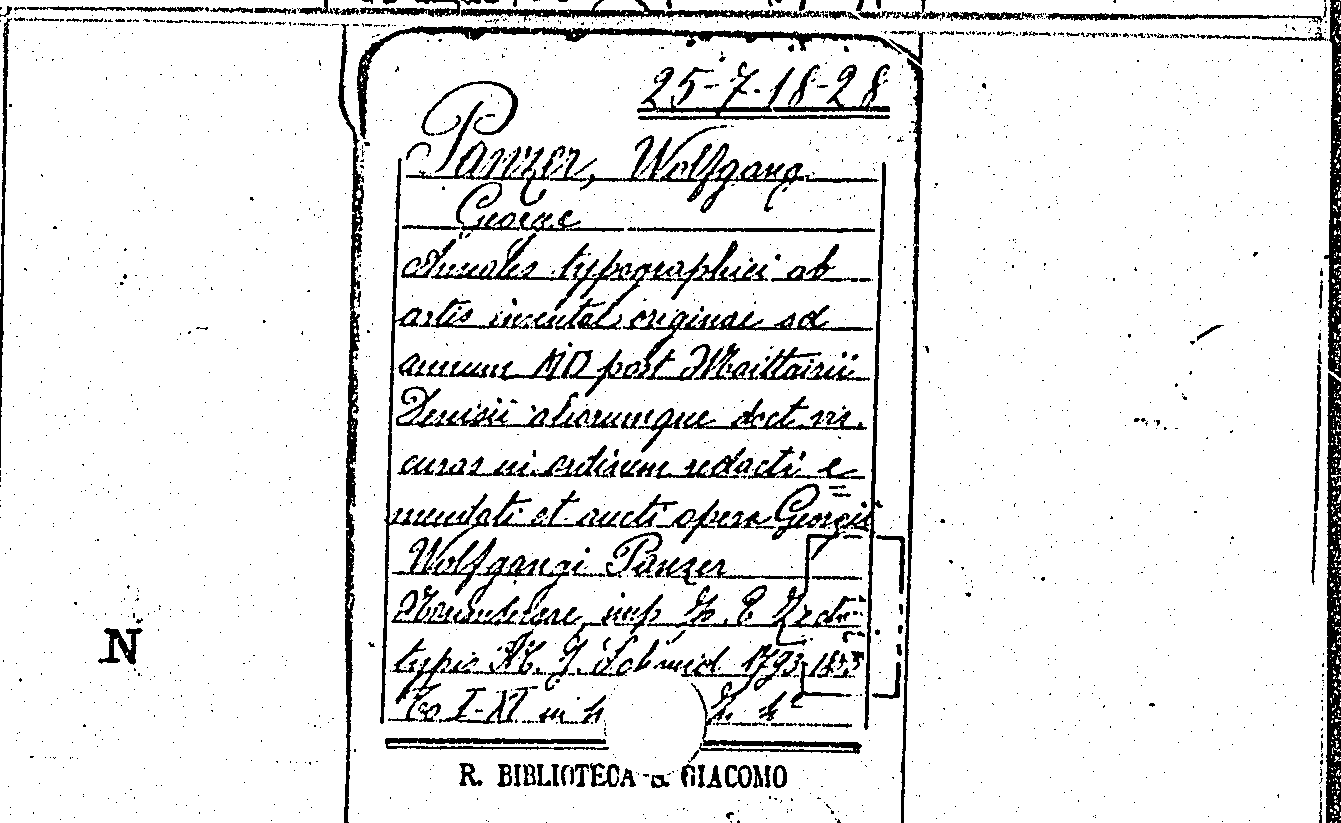 25-7-18-28
Panzer, Wolfgang
George
Annales typographici ab
artis inventae origine ad
annum MD post Maittairii
Denisii aliorumque doct. vir.
curas in ordinem redacti e
mendati et aucti opera Georgii
Wolfgangi Panzer
imp
typis 1793-1803
To I-XI in
N
R. BIBLIOTECA S. GIACOMO